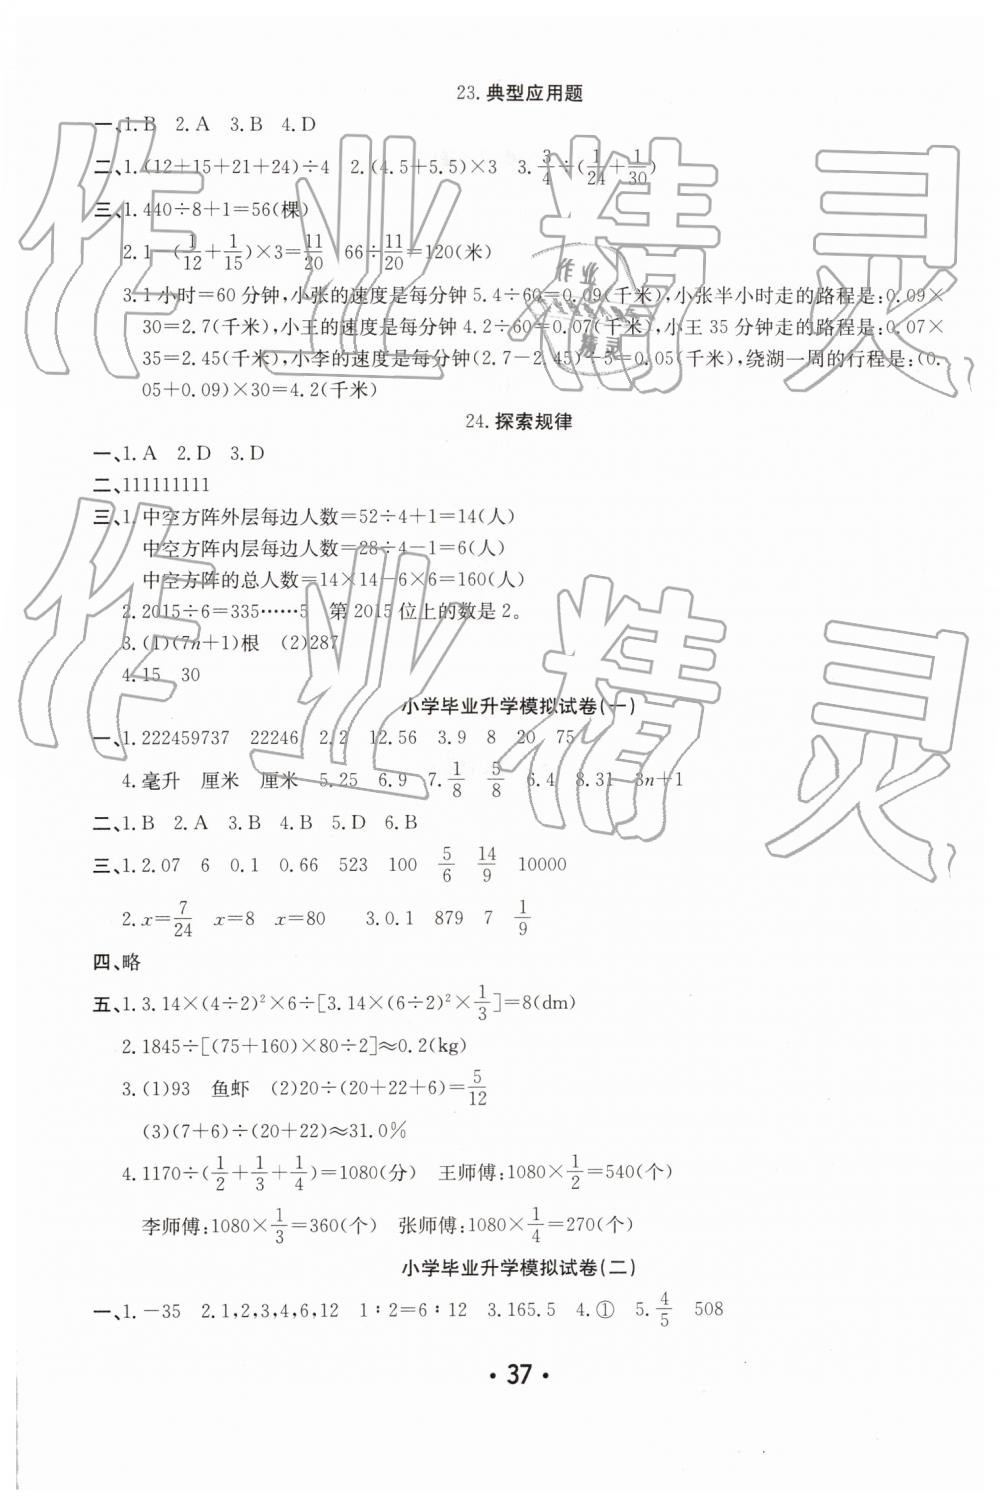 23.典型应用题
一、1.B 2.A 3.B 4.D
二、1.(12+15+21+24)÷4 2.(4.5+5.5)×3 3.3/4÷(1/24+1/30)
三、1.440÷8+1=56(棵)
2.1 (1/12+1/15)×3=11/20 66÷11/20=120(米)
3.1小时=60分钟,小张的速度是每分钟5.4÷60=0.09(千米),小张半小时走的路程是:0.09×
30=2.7(千米),小王的速度是每分钟4.2÷60=0.07(千米),小王35分钟走的路程是:0.07×
35=2.45(千米),小李的速度是每分钟(2.7-2.45)÷5=0.05(千米),绕湖一周的行程是:(0.
05+0.09)×30=4.2(千米)
24.探索规律
一、1.A 2.D 3.D
二、111111111
三、1.中空方阵外层每边人数=52÷4+1=14(人)
中空方阵内层每边人数=28÷4-1=6(人)
中空方阵的总人数=14×14-6×6=160(人)
2.2015÷6=335……5 第2015位上的数是2。
3.(1)(7n+1)根 (2)287
4.15 30
小学毕业升学模拟试卷(一)
一、1.222459737 22246 2.2 12.56 3.9 8 20 75
4.毫升 厘米 厘米 5.25 6.9 7.1/8 5/8 6.4 8.31 3n+1
二、1.B 2.A 3.B 4.B 5.D 6.B
三、1.2.07 6 0.1 0.66 523 100 5/6 14/9 10000
2.x=7/24 x=8 x=80 3.0.1 879 7 1/9
四、略
五、1.3.14×(4÷2)²×6÷[3.14×(6÷2)²×1/3]=8(dm)
2.1845÷[(75+160)×80÷2]≈0.2(kg)
3.(1)93 鱼虾 (2)20÷(20+22+6)=5/12
(3)(7+6)÷(20+22)≈31.0%
4.1170÷(1/2+1/3+1/4)=1080(分) 王师傅:1080×1/2=540(个)
李师傅:1080×1/3=360(个) 张师傅:1080×1/4=270(个)
小学毕业升学模拟试卷(二)
一、1.-35 2.1,2,3,4,6,12 1∶2=6∶12 3.165.5 4.① 5.4/5 508
·37·
作业精灵
作业精灵
作业
精灵